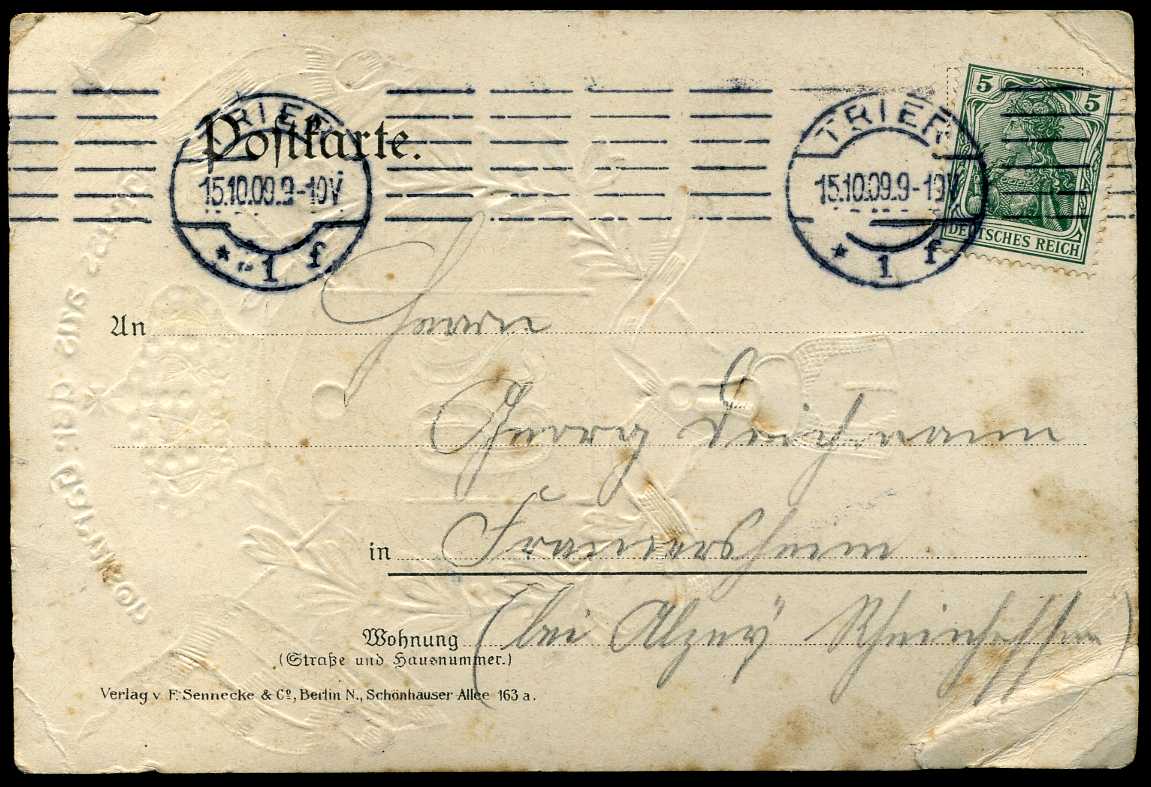 TRIER
15.10.09.9-10V
* 1 f
Postkarte.
TRIER
15.10.09.9-10V
* 1 f
5 5
DEUTSCHES REICH
An Herrn
Georg Deichmann
in Framersheim.
Wohnung (bei Alzeÿ Rheinhessen)
(Straße und Hausnummer.)
Verlag v. F. Sennecke & Cº, Berlin N., Schönhauser Allee 163 a.